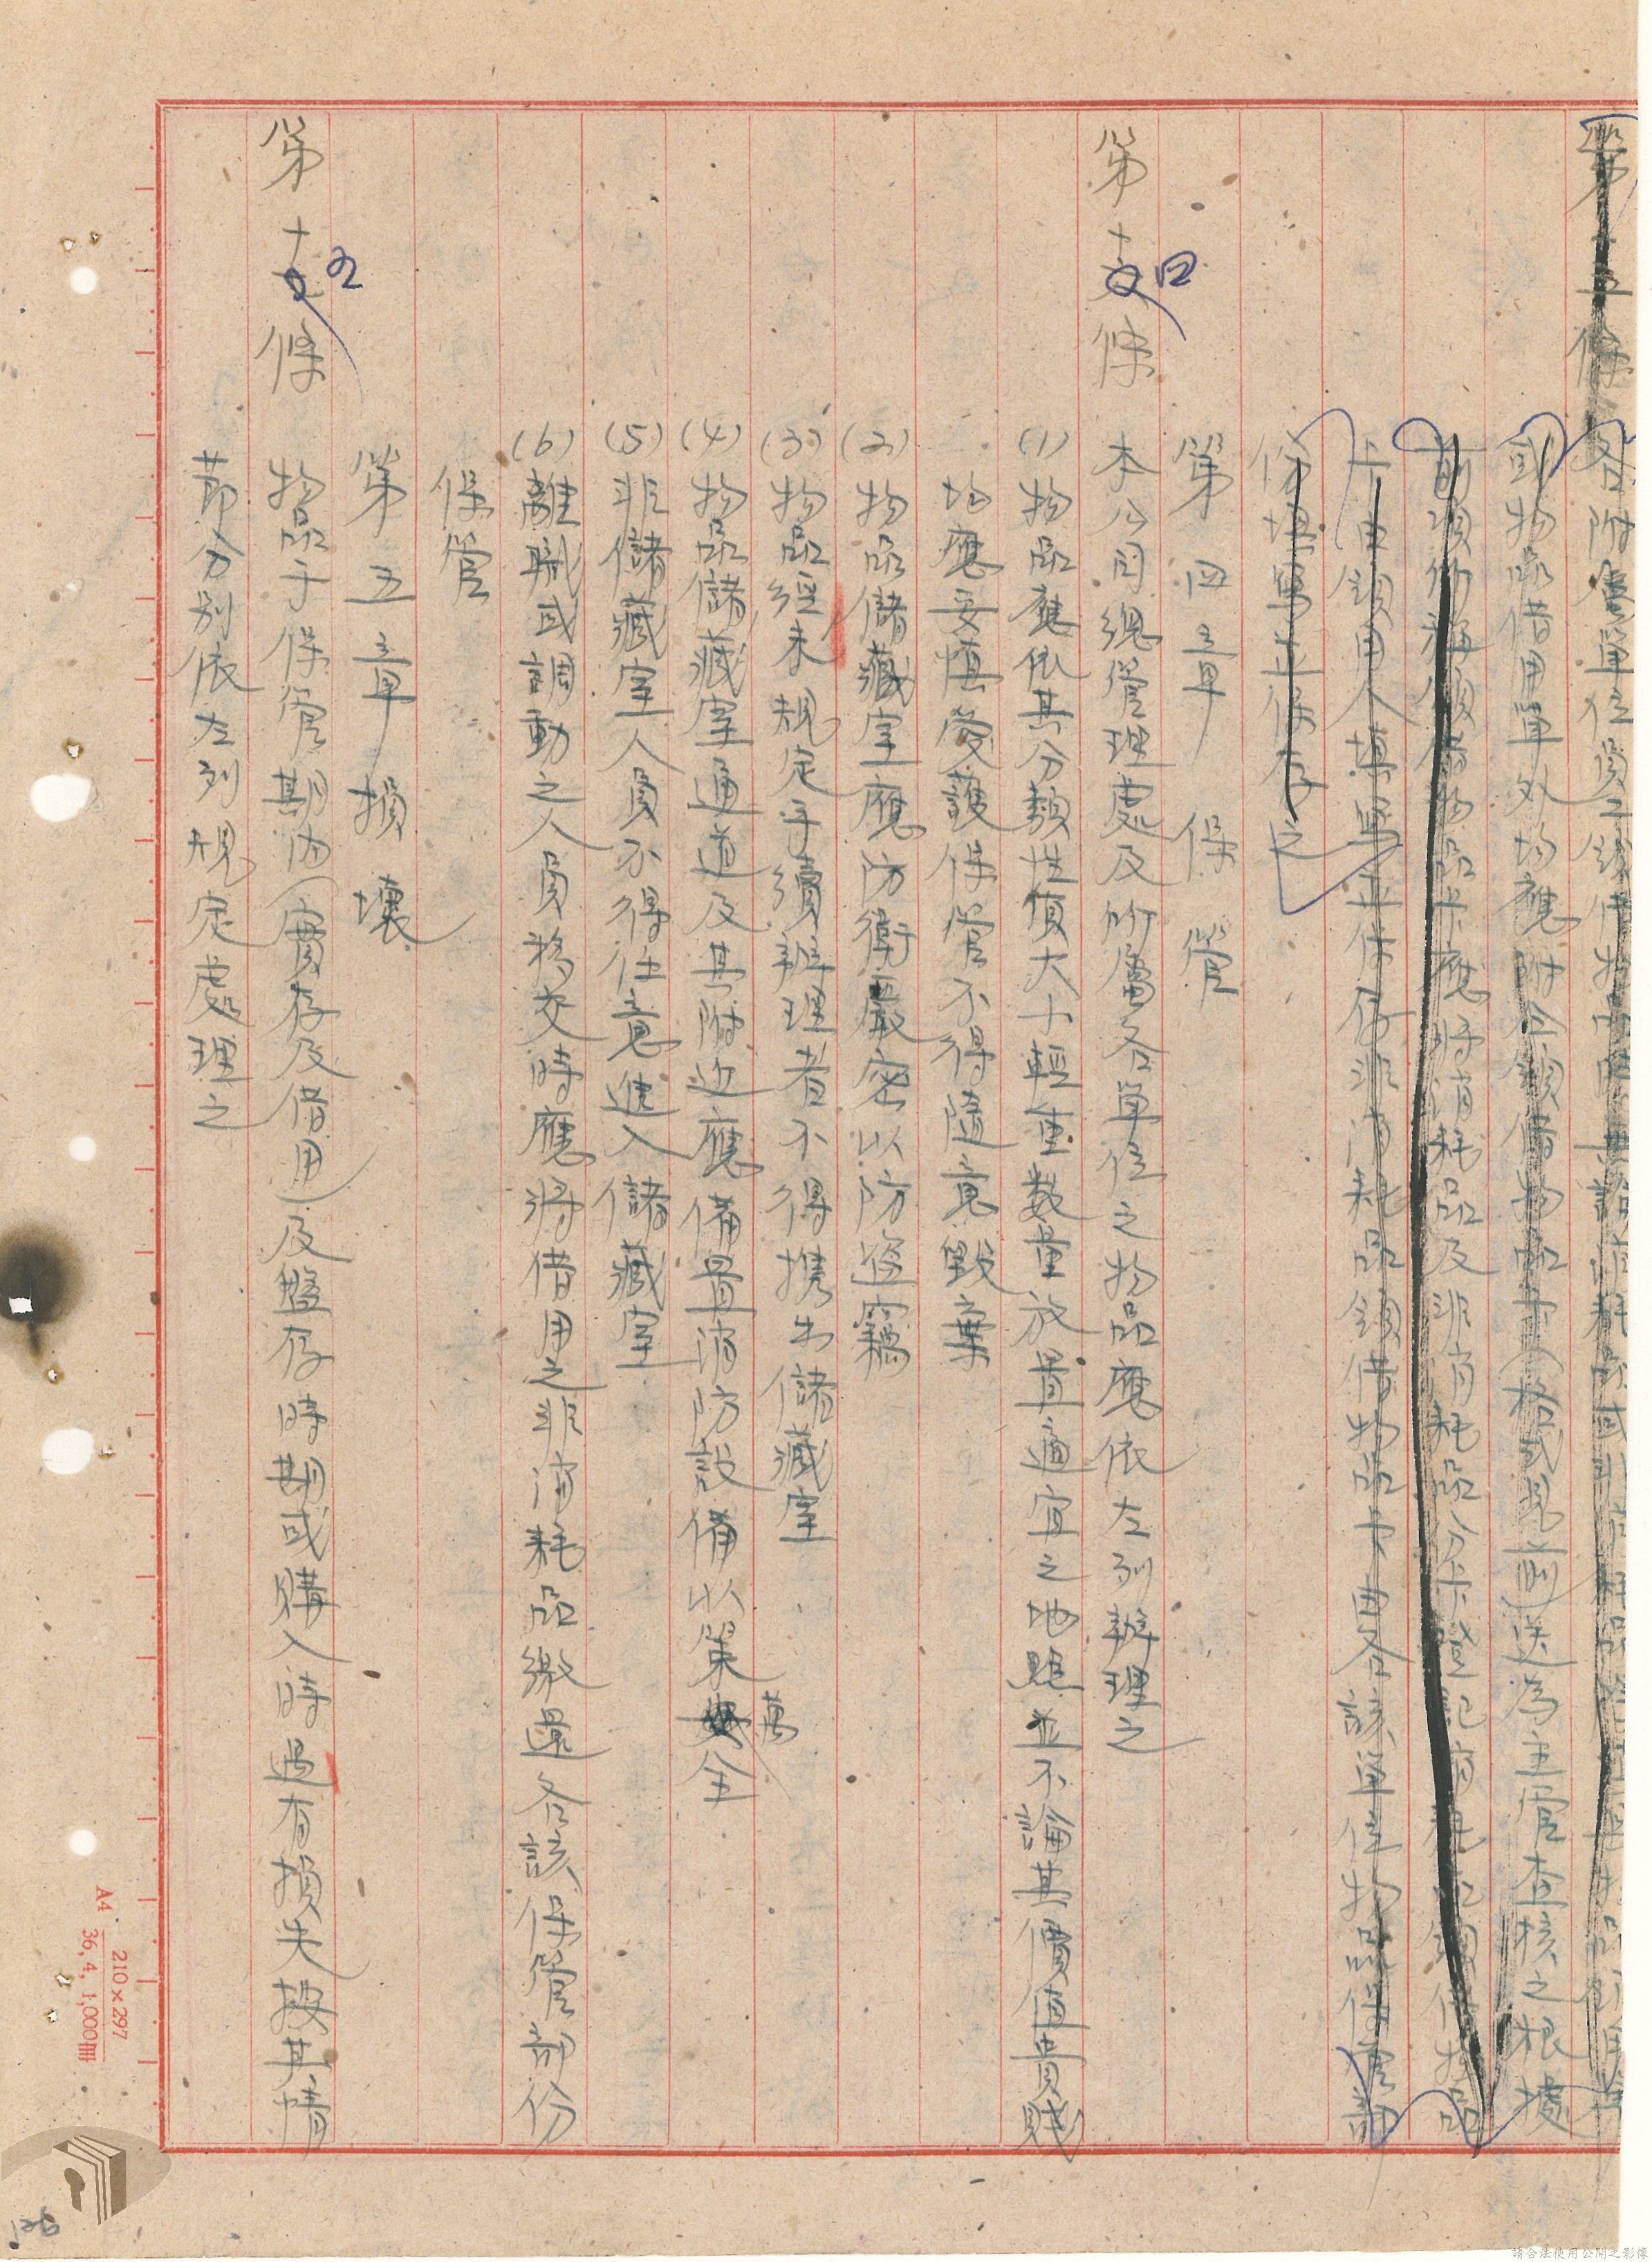 第十五條 各附屬單位員工領借物品時無論消耗品或非消耗品
或物品借用單外均應附全領借物品卡(格式見前)送為主管查核之根據
前項所稱領借物品卡應將消耗品及非消耗品分卡登記消耗品領借物品
卡由領用人填寫並保存非消耗品領借物品卡由各該單位物品保管部
份填寫並保存之
第四章 保管
第十四條 本公司總管理處及所屬各單位之物品應依左列辦理之
(1)物品應依其分類性質大小輕重數量放置適宜之地點並不論其價值貴賤
均應妥慎愛護保管不得隨意毀棄
(2)物品儲藏室應防衛嚴密以防盜竊
(3)物品經未規定手續辦理者不得携出儲藏室
(4)物品儲藏室通道及其附近應備置消防設備以策萬全
(5)非儲藏室人員不得任意進入儲藏室
(6)離職或調動之人員移交時應將借用之非消耗品繳還各該保管部份
保管
第五章 損壞
第十五條 物品于保管期內(實存及借用)及盤存時期或購入時遇有損失按其情
節分別依左列規定處理之
A4 210×297
36, 4, 1,000冊
126
請合法使用公開之影像